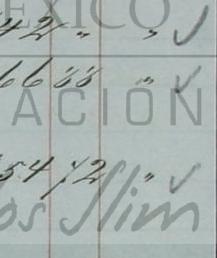 EXICO
42 " " ✓
6633 " ✓
ACIÓN
5472 " ✓
os Slim